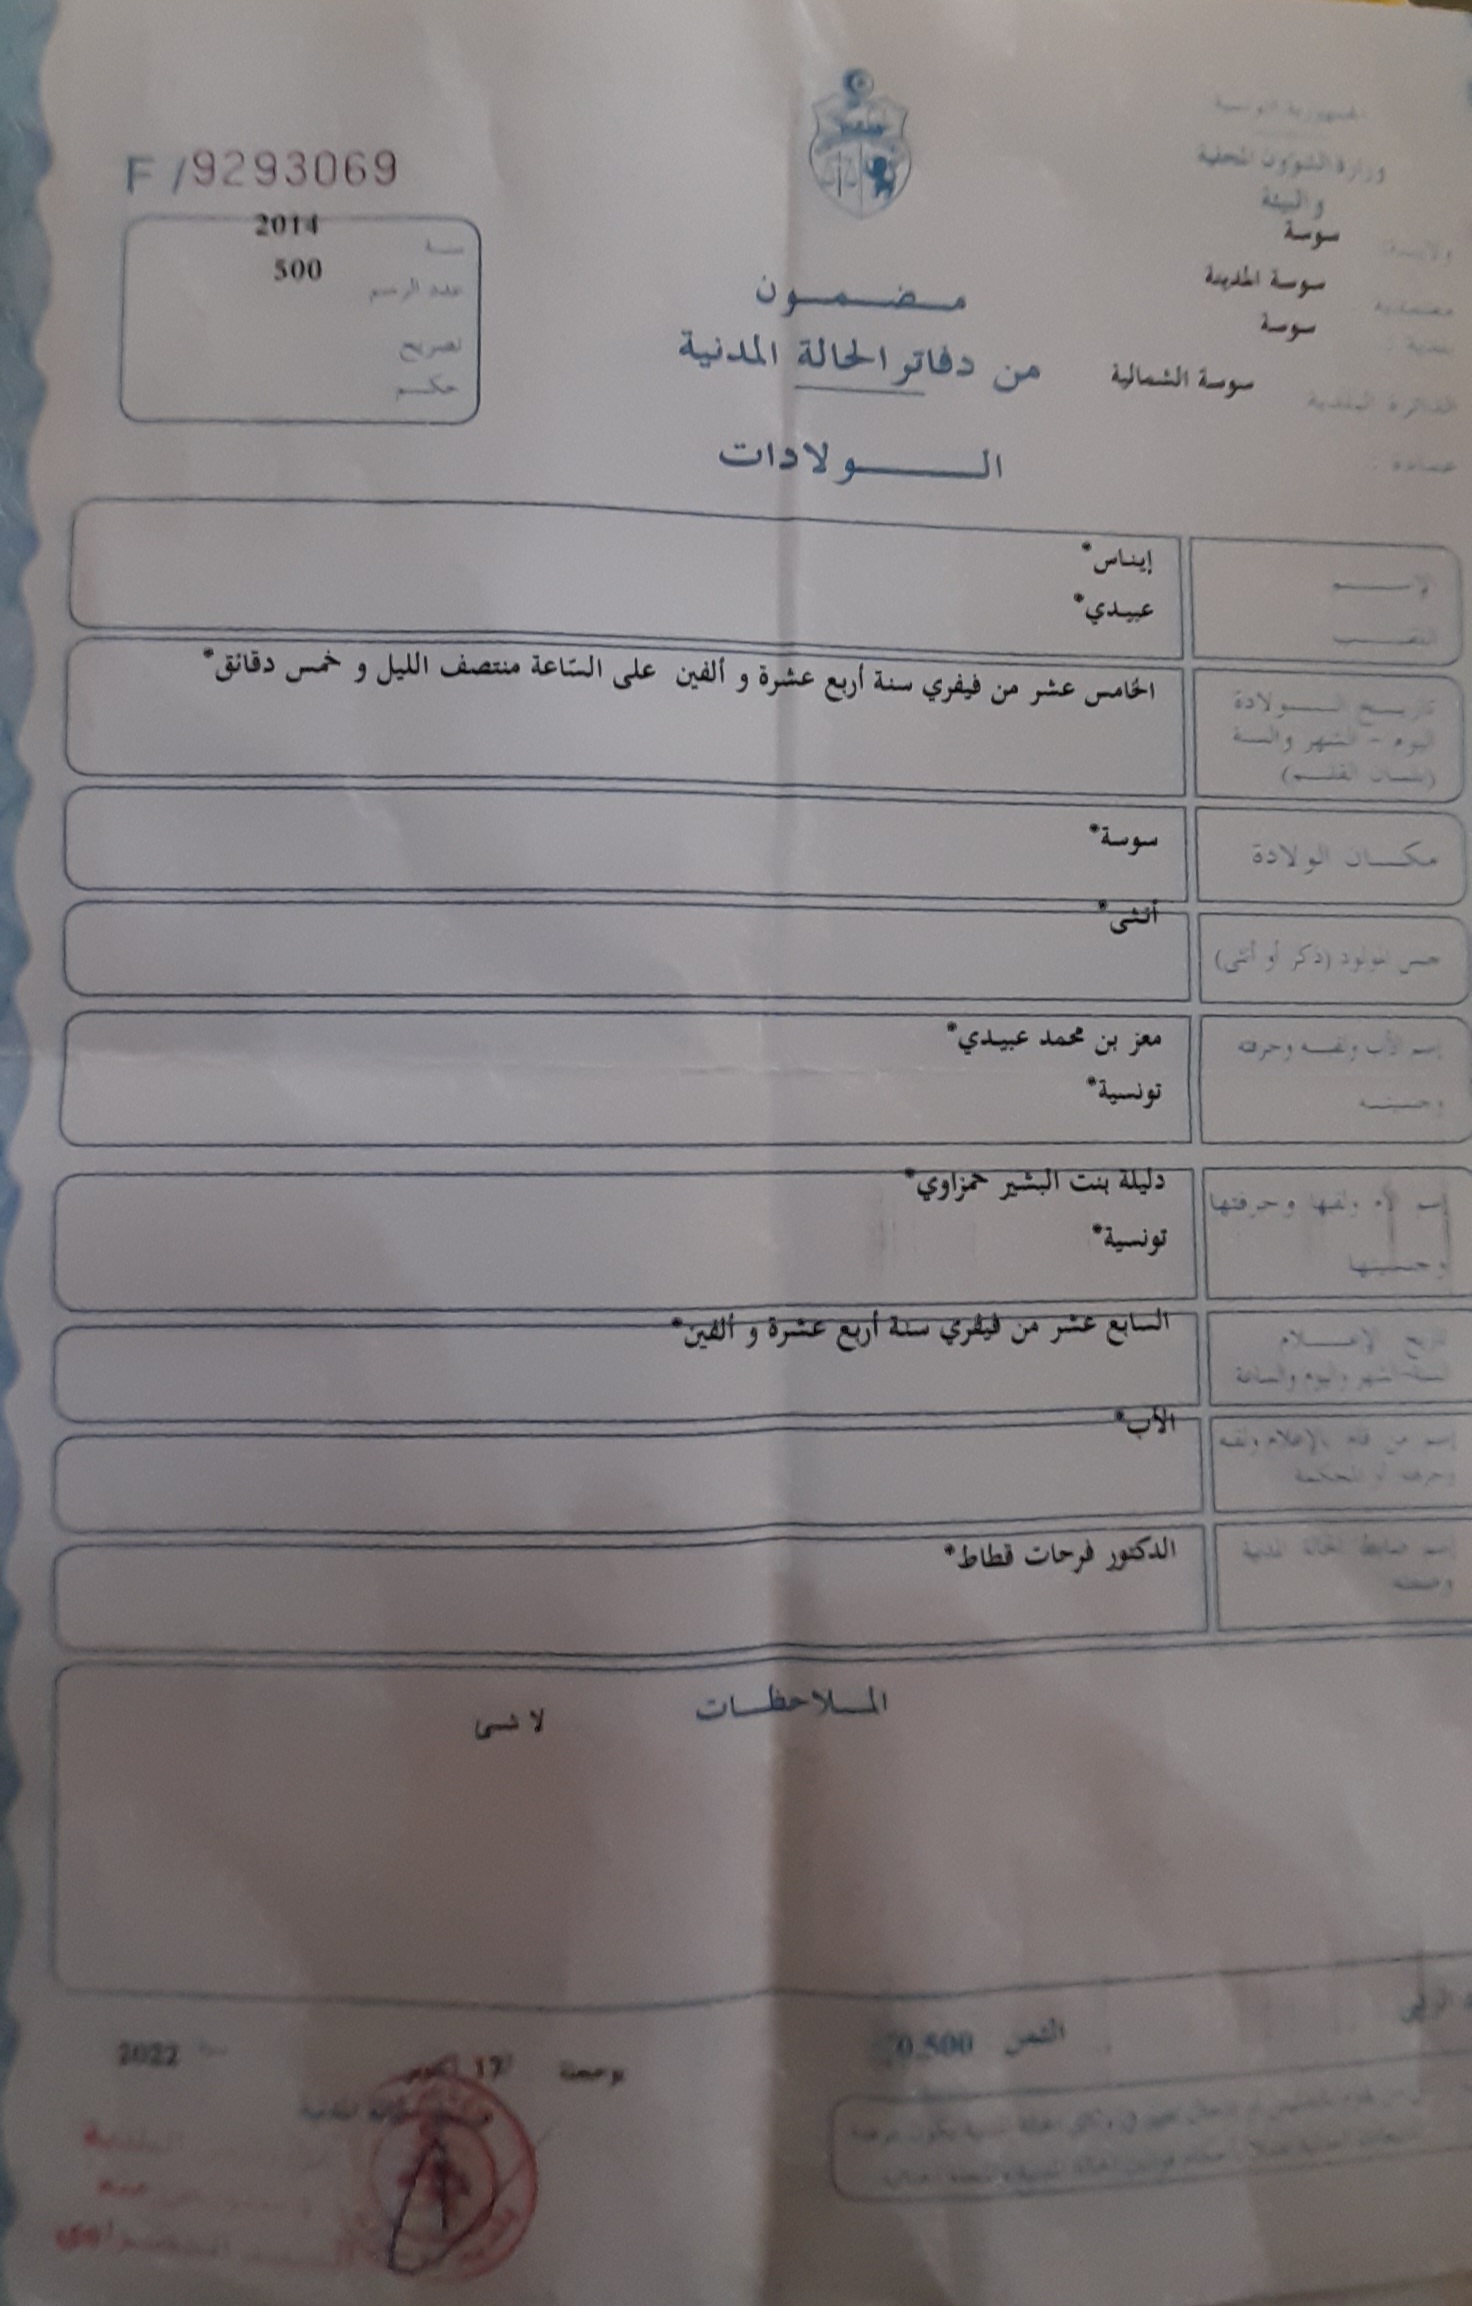 الجمهورية التونسية
وزارة الشؤون المحلية
والبيئة
ولاية: سوسة
معتمدية سوسة المدينة
بلدية: سوسة
الدائرة البلدية سوسة الشمالية
عمادة:
F/9293069
سنة 2014
عدد الرسم 500
تصريح
حكم
مضمون
من دفاتر الحالة المدنية
الولادات
الإسم إيناس*
اللقب عبيدي*
تاريخ الولادة الخامس عشر من فيفري سنة أربع عشرة و ألفين على السّاعة منتصف الليل و خمس دقائق*
اليوم - الشهر والسنة
(بلسان القلم)
مكان الولادة سوسة*
جنس المولود (ذكر أو أنثى) أنثى*
إسم الأب ولقبه وحرفته معز بن محمد عبيدي*
وجنسيته تونسية*
إسم الأم ولقبها وحرفتها دليلة بنت البشير حمزاوي*
وجنسيتها تونسية*
تاريخ الإعلام السابع عشر من فيفري سنة أربع عشرة و ألفين*
السنة والشهر واليوم والساعة
إسم من قام بالإعلام ولقبه الأب*
وحرفته أو المحكمة
إسم ضابط الحالة المدنية الدكتور فرحات قطاط*
وصفته
الملاحظات
لا شى
الثمن 0.500
بوحسينة 17 2022